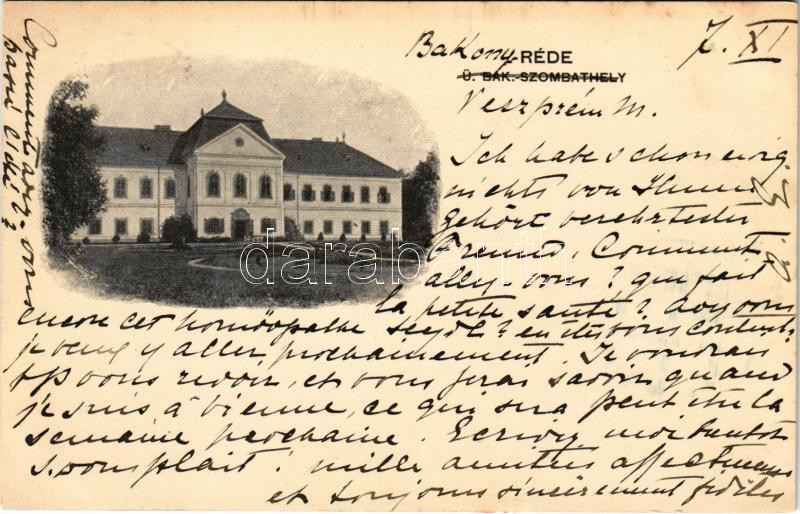 Bakony-RÉDE
7. XI
Ü. BAK.-SZOMBATHELY
Veszprém M.
Ich habe schon ewig
nichts von Ihnen
gehört verehrtester
Freund, Comment
allez-vous? que fait
la petite santé? Voyez vous
encore cet homöopathe ? en êtes vous content?
prochainement. Je voudrais
vous revoir, et vous ferai savoir quand
je suis à Vienne, ce qui sera peut être la
semaine prochaine. Ecrivez moi bientôt
s. vous plait! mille amitiés
et toujours sincèrement fidèles
Comment avez-vous
passé l'été?
darabanth